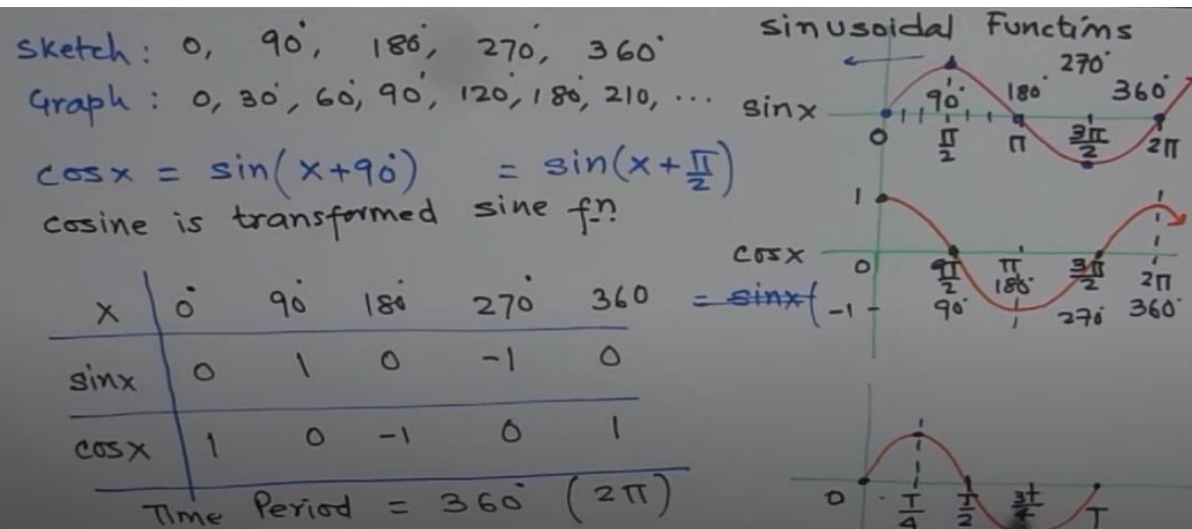 sketch: 0, 90°, 180°, 270°, 360°
Graph: 0, 30°, 60°, 90°, 120°, 180°, 210, ...
cosx = sin(x+90°) = sin(x+π/2)
cosine is transformed sine fn.
x 0° 90° 180° 270° 360
sinx 0 1 0 -1 0
cosx 1 0 -1 0 1
Time Period = 360° (2π)
sinusoidal Functims
270°
90° 180° 360°
sinx
0 π/2 π 3π/2 2π
1
cosx
0 π/2 π 3π/2 2π
180°
= sinx( -1 90° 270° 360°
0 T/4 T/2 T